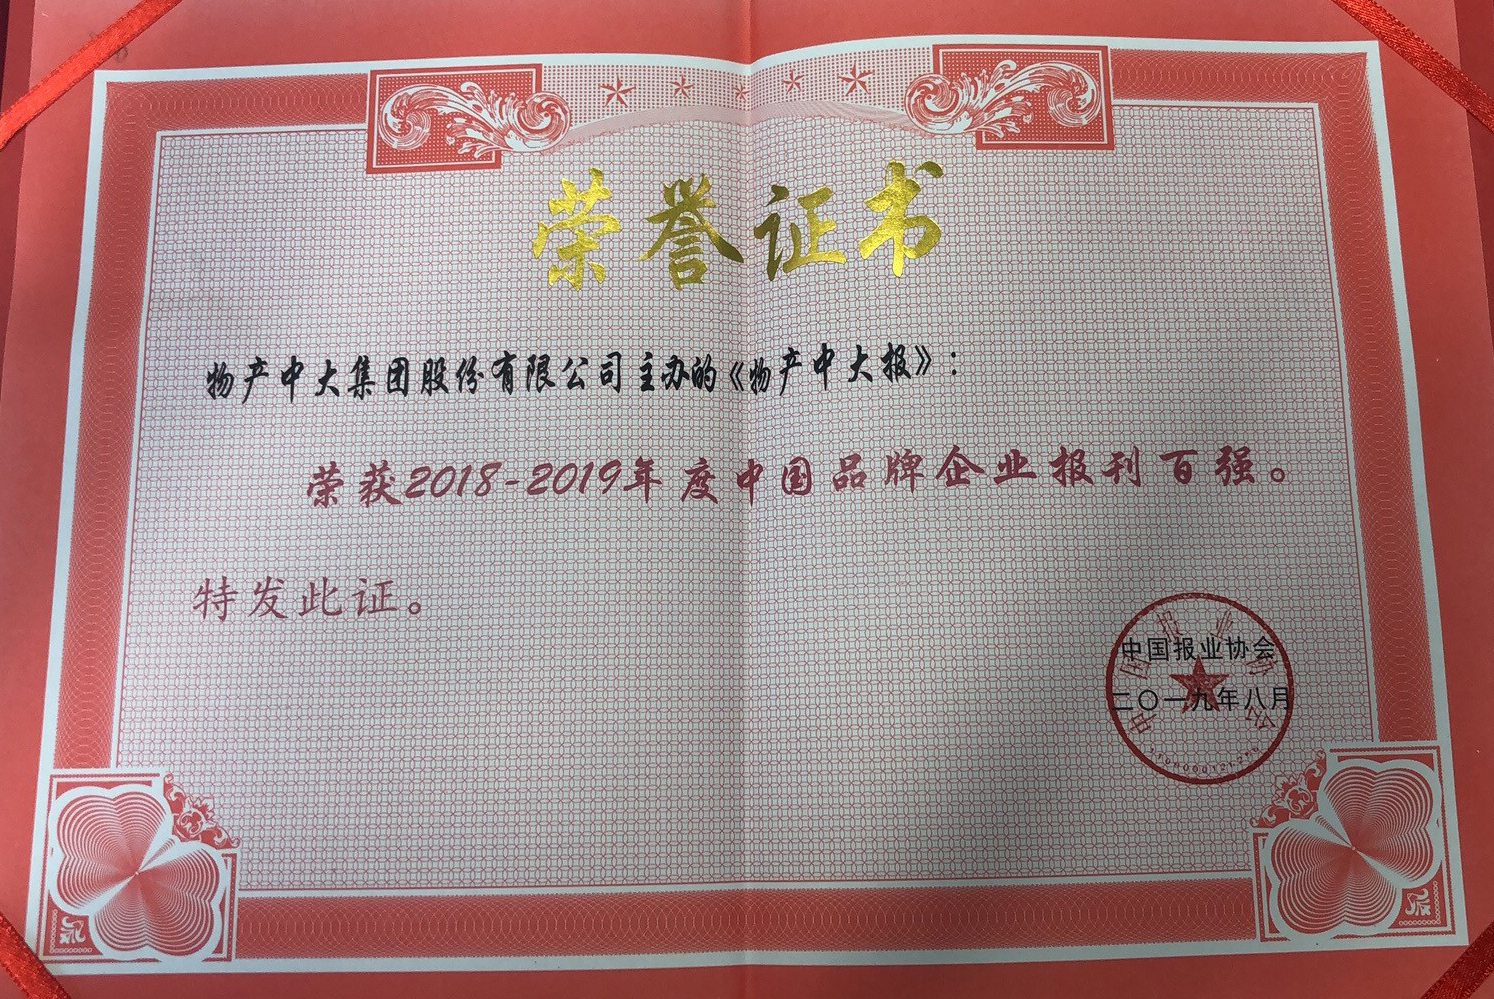 荣誉证书
物产中大集团股份有限公司主办的《物产中大报》：
荣获2018-2019年度中国品牌企业报刊百强。
特发此证。
中国报业协会
二〇一九年八月
中国报业协会